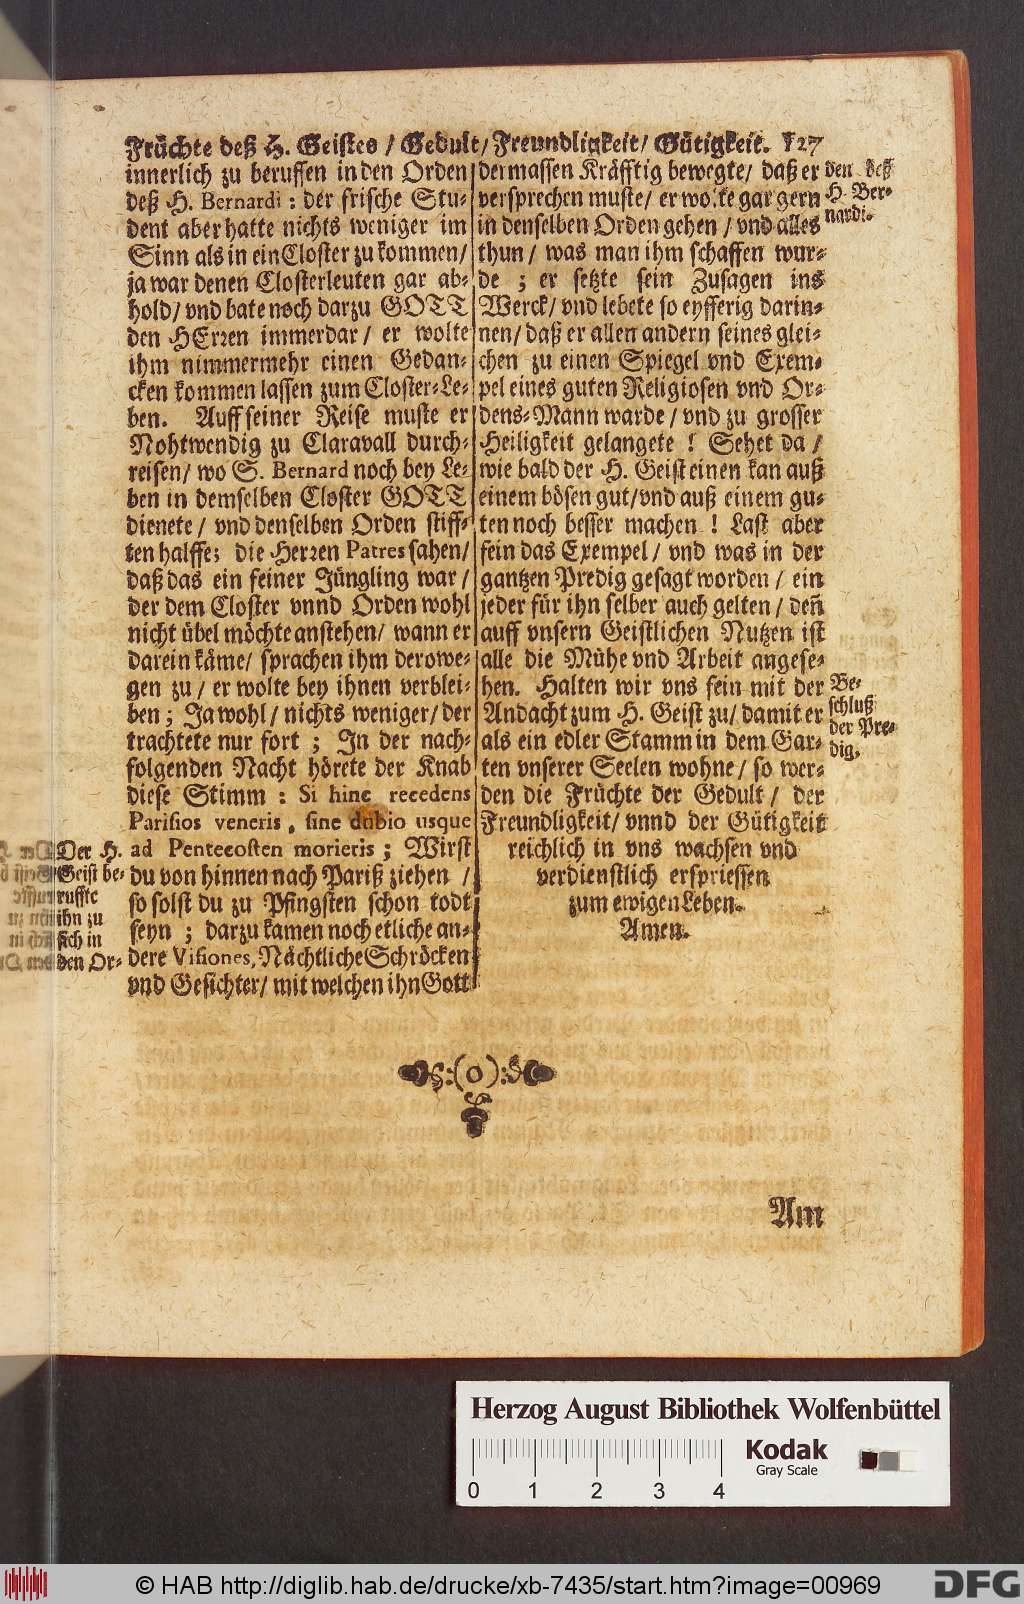 Früchte deß H. Geistes / Gedult / Freundligkeit / Gütigkeit. 127
innerlich zu beruffen in den Orden
deß H. Bernardi : der frische Stu-
dent aber hatte nichts weniger im
Sinn als in ein Closter zu kommen /
ja war denen Closterleuten gar ab-
hold / vnd bate noch darzu GOTT
den HErren immerdar / er wolte
ihm nimmermehr einen Gedan-
cken kommen lassen zum Closter-Le-
ben. Auff seiner Reise muste er
Nohtwendig zu Claravall durch-
reisen / wo S. Bernard noch bey Le-
ben in demselben Closter GOTT
dienete / vnd denselben Orden stiff-
ten halffe; die Herren Patres sahen /
daß das ein feiner Jüngling war /
der dem Closter vnnd Orden wohl
nicht übel möchte anstehen / wann er
darein käme / sprachen ihm derowe-
gen zu / er wolte bey ihnen verblei-
ben ; Ja wohl / nichts weniger / der
trachtete nur fort ; In der nach-
folgenden Nacht hörete der Knab
diese Stimm : Si hinc recedens
Parisios veneris , sine dubio usque
ad Pentecosten morieris ; Wirst
du von hinnen nach Pariß ziehen /
so solst du zu Pfingsten schon todt
seyn ; darzu kamen noch etliche an-
dere Visiones, Nächtliche Schröcken
vnd Gesichter / mit welchen ihn Gott
Der H.
Geist be-
ruffte
ihn zu
sich in
den Or-
dermassen Kräfftig bewegte / daß er
versprechen muste / er wolte gar gern
in denselben Orden gehen / vnd alles
thun / was man ihm schaffen wur-
de ; er setzte sein Zusagen ins
Werck / vnd lebete so eyfferig darin-
nen / daß er allen andern seines glei-
chen zu einen Spiegel vnd Exem-
pel eines guten Religiosen vnd Or-
dens-Mann warde / vnd zu grosser
Heiligkeit gelangete ! Sehet da /
wie bald der H. Geist einen kan auß
einem bösen gut / vnd auß einem gu-
ten noch besser machen ! Last aber
sein das Exempel / vnd was in der
gantzen Predig gesagt worden / ein
jeder für ihn selber auch gelten / deñ
auff vnsern Geistlichen Nutzen ist
alle die Mühe vnd Arbeit angese-
hen. Halten wir vns fein mit der
Andacht zum H. Geist zu / damit er
als ein edler Stamm in dem Gar-
ten vnserer Seelen wohne / so wer-
den die Früchte der Gedult / der
Freundligkeit / vnnd der Gütigkeit
reichlich in vns wachsen vnd
verdienstlich erspriessen
zum ewigen Leben.
Amen.
den deß
H. Ber-
nardi.
Be-
schluß
der Pre-
dig.
:(o):
Am
Herzog August Bibliothek Wolfenbüttel
Kodak
Gray Scale
0 1 2 3 4
© HAB http://diglib.hab.de/drucke/xb-7435/start.htm?image=00969
DFG